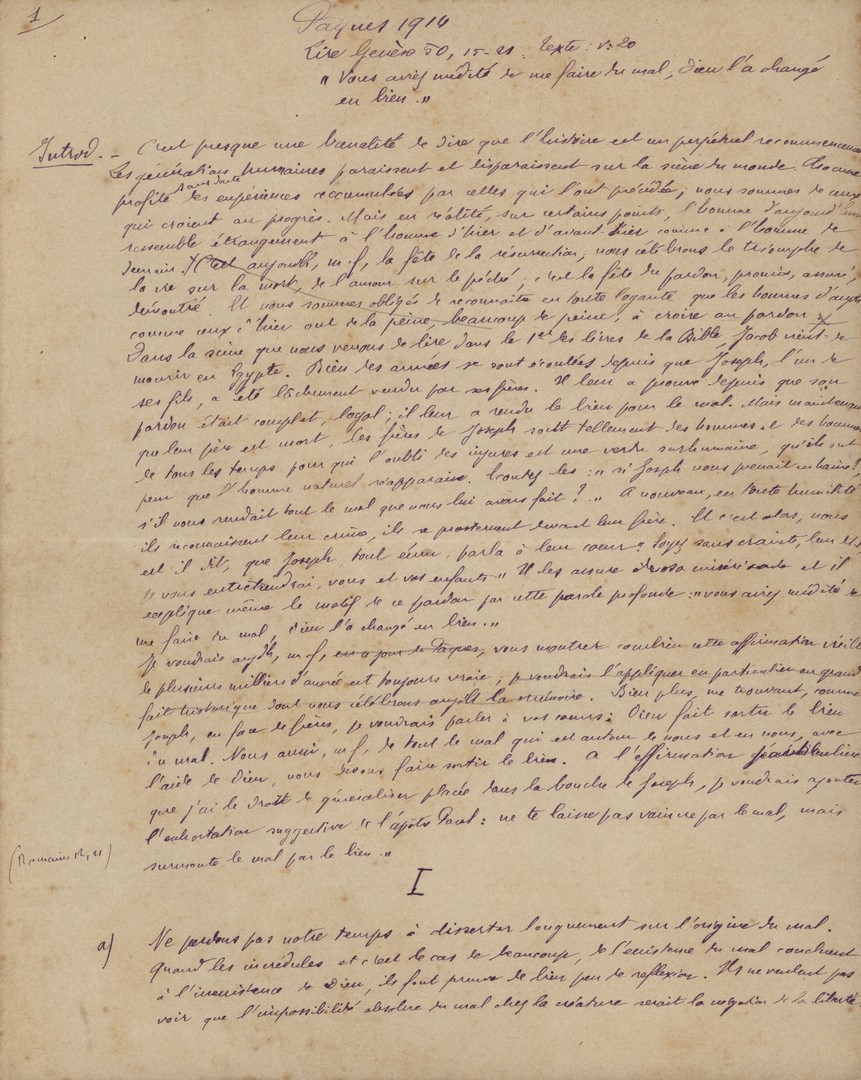 1
Pâques 1914
Lire Genèse 50, 15-21. Texte : v. 20
"Vous aviez médité de me faire du mal, Dieu l'a changé
en bien."
Introd. - C'est presque une banalité de dire que l'histoire est un perpétuel recommencement
Les générations humaines paraissent et disparaissent sur la scène du monde.
profité sans doute des expériences accumulées par celles qui l'ont précédée ; nous sommes de ceux
qui croient au progrès. Mais en réalité, sur certains points, l'homme d'aujourd'hui
ressemble étrangement à l'homme d'hier et d'avant hier comme à l'homme de
demain. C'est aujourdh, m.f, la fête de la résurrection ; nous célébrons le triomphe de
la vie sur la mort, de l'amour sur le péché ; c'est la fête du pardon, promis, assuré,
démontré. Et nous sommes obligés de reconnaître en toute loyauté que les hommes
comme ceux d'hier ont de la peine, beaucoup de peine, à croire au pardon
Dans la scène que nous venons de lire dans le 1er des livres de la Bible, Jacob vient de
mourir en Egypte. Bien des années se sont écoulées depuis que Joseph, l'un de
ses fils, a été lâchement vendu par ses frères. Il leur a prouvé depuis que son
pardon était complet, loyal ; il leur a rendu le bien pour le mal. Mais maintenant
que leur père est mort, les frères de Joseph sont tellement des hommes et des hommes
de tous les temps pour qui l'oubli des injures est une vertu surhumaine, qu'ils ont
peur que l'homme naturel réapparaisse. Ecoutez les : "si Joseph nous prenait en haine !
s'il nous rendait tout le mal que nous lui avons fait ?" A nouveau, en toute humilité
ils reconnaissent leur crime, ils se prosternent devant leur frère. Et c'est alors, nous
est il dit, que Joseph tout ému, parla à leur coeur : soyez sans crainte, leur dit
"vous entretiendrai, vous et vos enfants" Il les assure de sa miséricorde et il
explique même le motif de ce pardon par cette parole profonde : "vous aviez médité de
me faire du mal, Dieu l'a changé en bien."
Je voudrais aujdh, m.f, en ce jour de Pâques, vous montrer combien cette affirmation vieille
de plusieurs milliers d'année est toujours vraie, je voudrais l'appliquer en particulier au grand
fait historique dont nous célébrons aujdh la mémoire. Bien plus, me trouvant, comme
Joseph, en face de frères, je voudrais parler à vos coeurs : Dieu fait sortir le bien
du mal. Nous aussi, m.f, de tout le mal qui est autour de nous et en nous, avec
l'aide de Dieu, nous devons faire sortir le bien. A l'affirmation
que j'ai le droit de généraliser placée dans la bouche de Joseph, je voudrais ajouter
l'exhortation suggestive de l'apôtre Paul : ne te laisse pas vaincre par le mal, mais
surmonte le mal par le bien."
(Romains 12, 21)
I
a) Ne perdons pas notre temps à disserter longuement sur l'origine du mal.
Quand les incrédules et c'est le cas de beaucoup, de l'existence du mal concluent
à l'inexistence de Dieu, ils font preuve de bien peu de reflexion. Ils ne veulent pas
voir que l'impossibilité absolue du mal chez la créature serait la négation de la liberté.